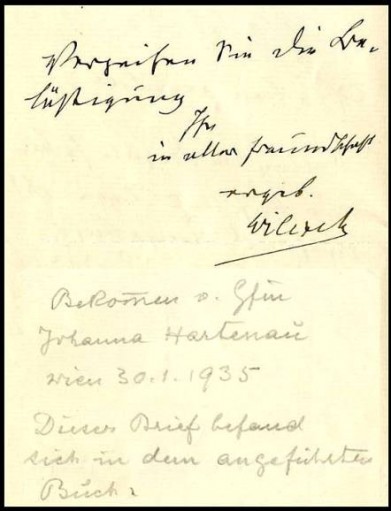 Verzeihen Sie die Be-
lästigung
Ihr
in alter Freundschaft
ergeb.
Wilczek
Bekom̄en v. Gfin
Johanna Hartenau
Wien 30.1.1935
Dieser Brief befand
sich in dem angeführten
Buch.